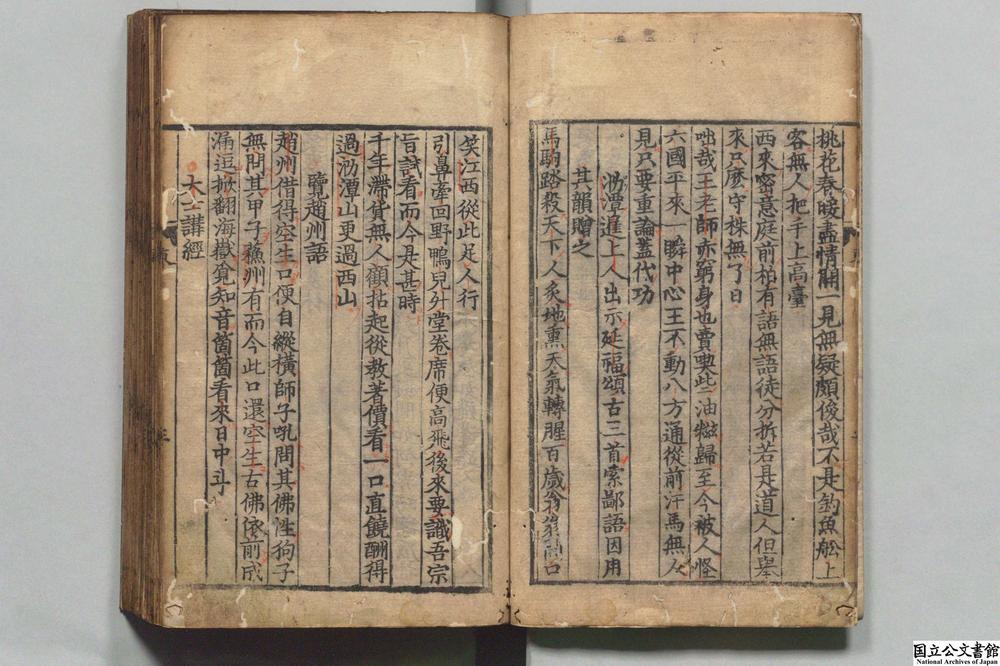 桃花春暖盡情開一見無疑頗俊哉不是釣魚舩上
客無人把手上高臺
西來密意庭前柏有語無語徒分拆若是道人但舉
來只麽守株無了日
咄哉王老師亦窮身也賣與此油糍歸至今被人怪
六國平來一瞬中心王不動八方通從前汗馬無人
見只要重論蓋代功
泐潭進上人出示延福頌古三首索鄙語因用
其韻贈之
馬駒踏殺天下人炙地熏天氣轉腥百歲翁翁開口
笑江西從此足人行
引鼻牽回野鴨兒升堂卷席便高飛後來要識吾宗
旨試看而今是甚時
千年滯貨無人顧拈起從教著價看一口直饒酬得
過泐潭山更過西山
覽趙州語
趙州借得空生口便自縱橫師子吼問其佛性狗子
無問其甲子蘇州有而今此口還空生古佛依前成
漏逗掀翻海嶽覓知音箇箇看來日中斗
大士講經
国立公文書館
National Archives of Japan